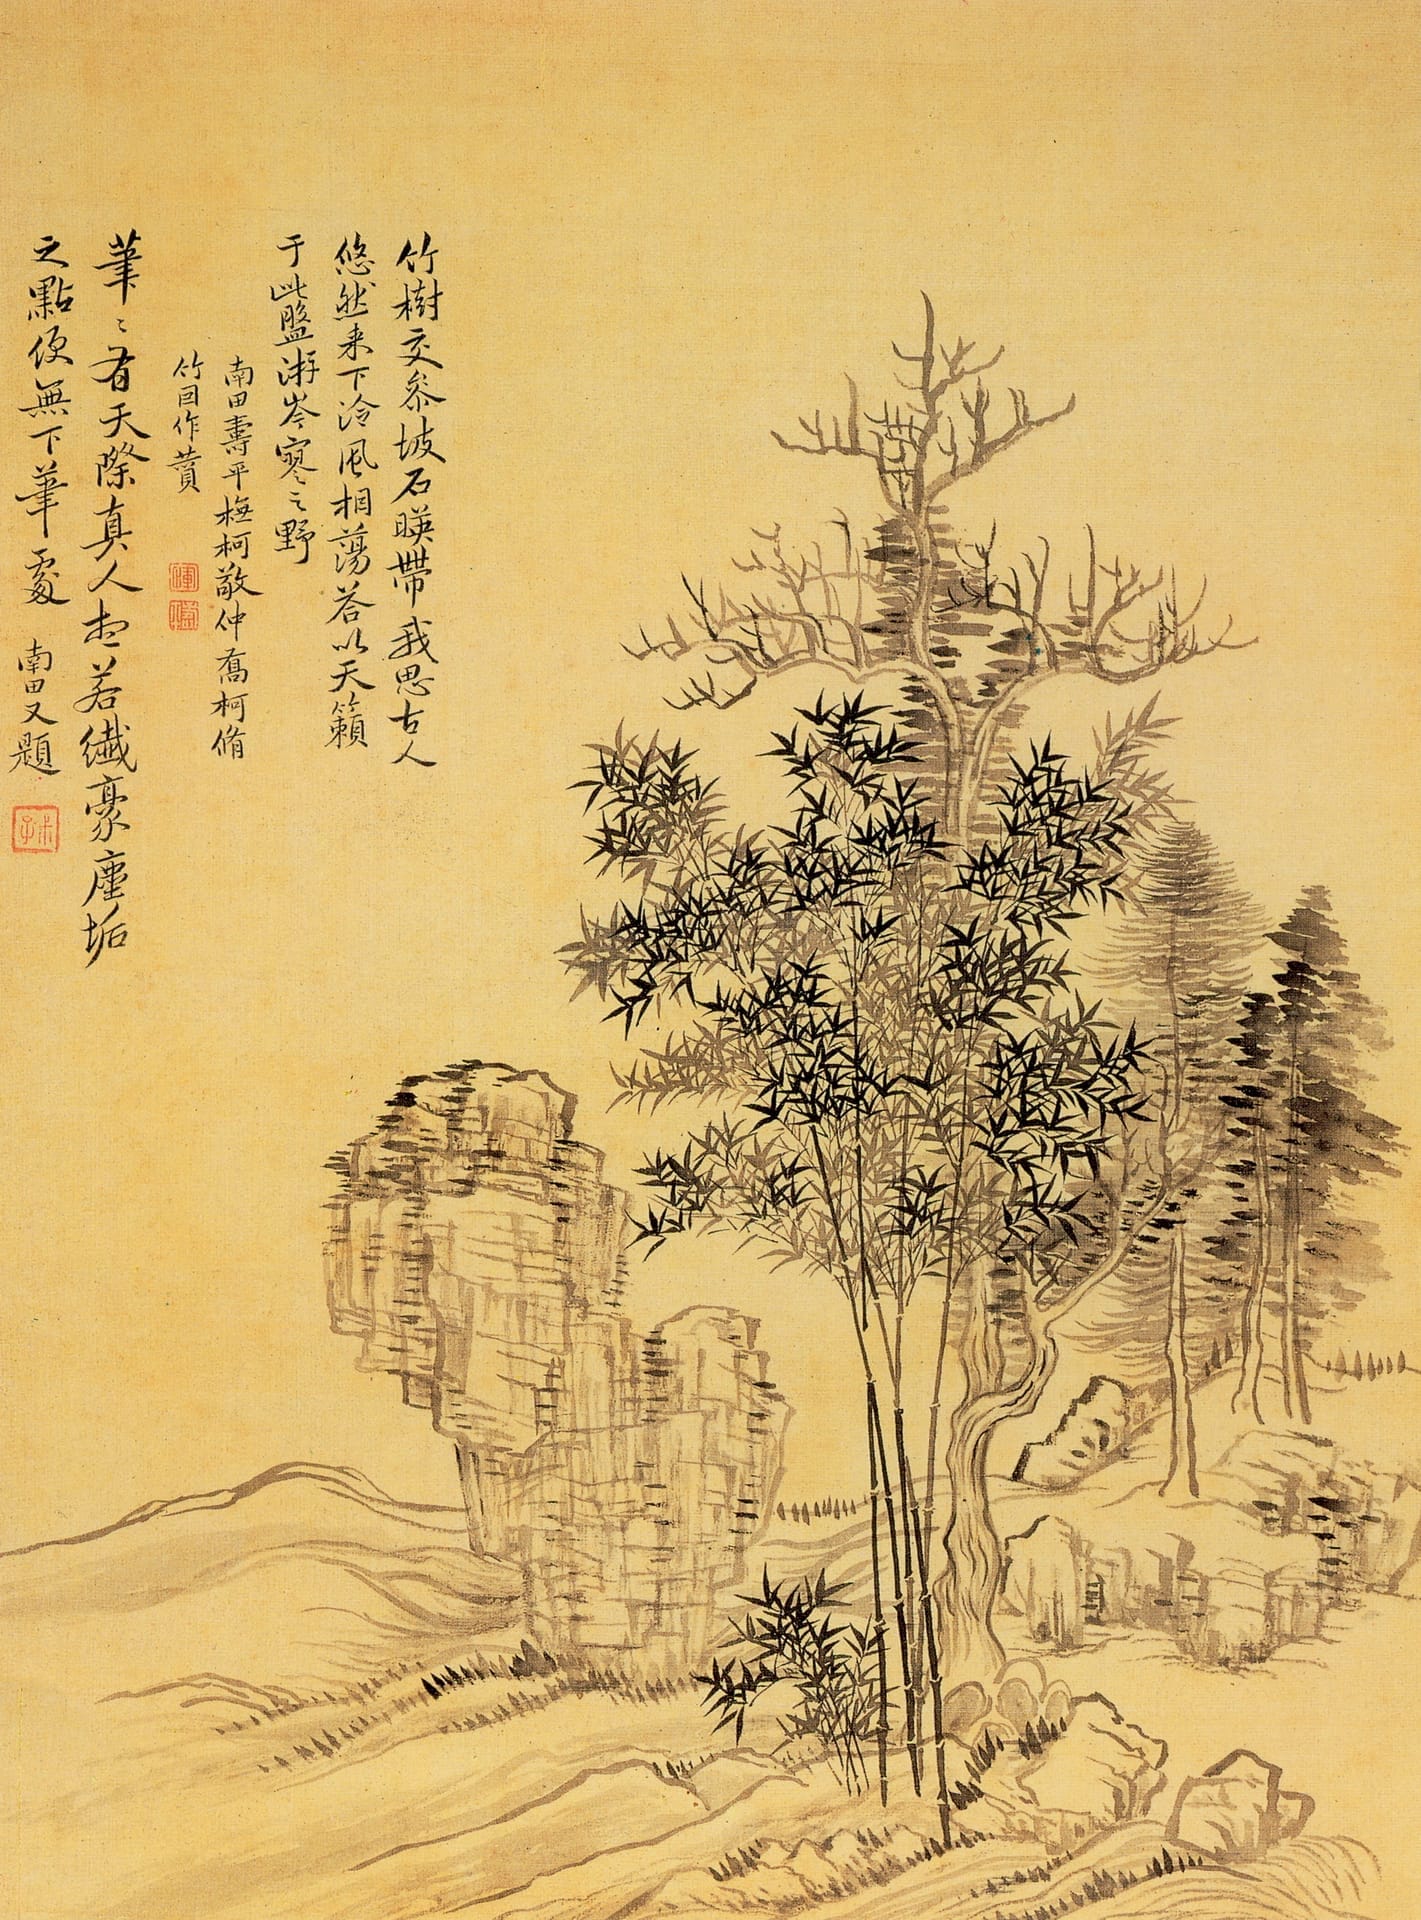 竹樹交参坡石暎帶我思古人
悠然来下泠風相蕩荅以天籟
于此盤游岑寥之野
南田壽平橅柯敬仲喬柯脩
竹因作贊
筆〻有天際真人想若纖豪塵垢
之點便無下筆處 南田又題